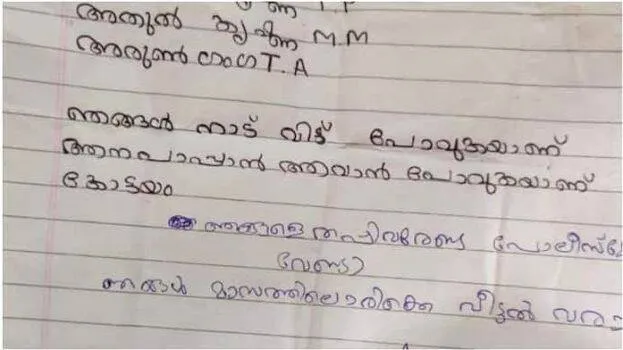 അതുൽ കൃഷ്ണ M.M
അരുൺ T.A
ഞങ്ങൾ നാട് വിട്ട് പോവുകയാണ്
ആനപാപ്പാൻ ആവാൻ പോവുകയാണ്
കോട്ടയം
ഞങ്ങളെ തപ്പിവരേണ്ട പോലീസ്
വേണ്ടാ
ഞങ്ങൾ മാസത്തിലൊരിക്കെ വീട്ടൽ